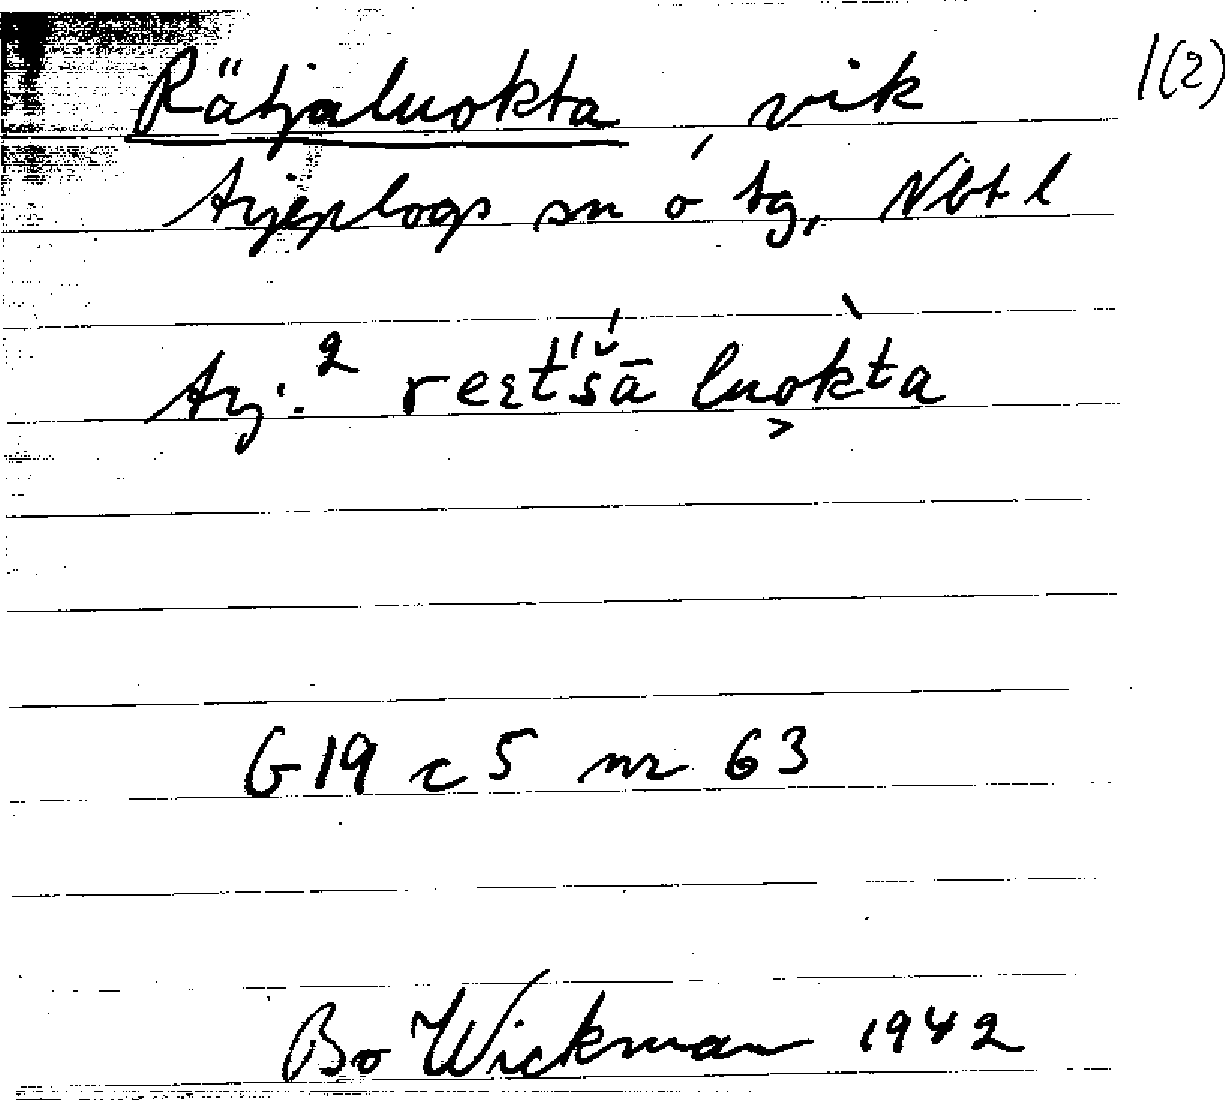 Rätjaluokta, vik 1(2)
Arjeplogs sn o tg, Nbt l
Arj.² luokta
G19 c5 nr 63
Bo Wickman 1942